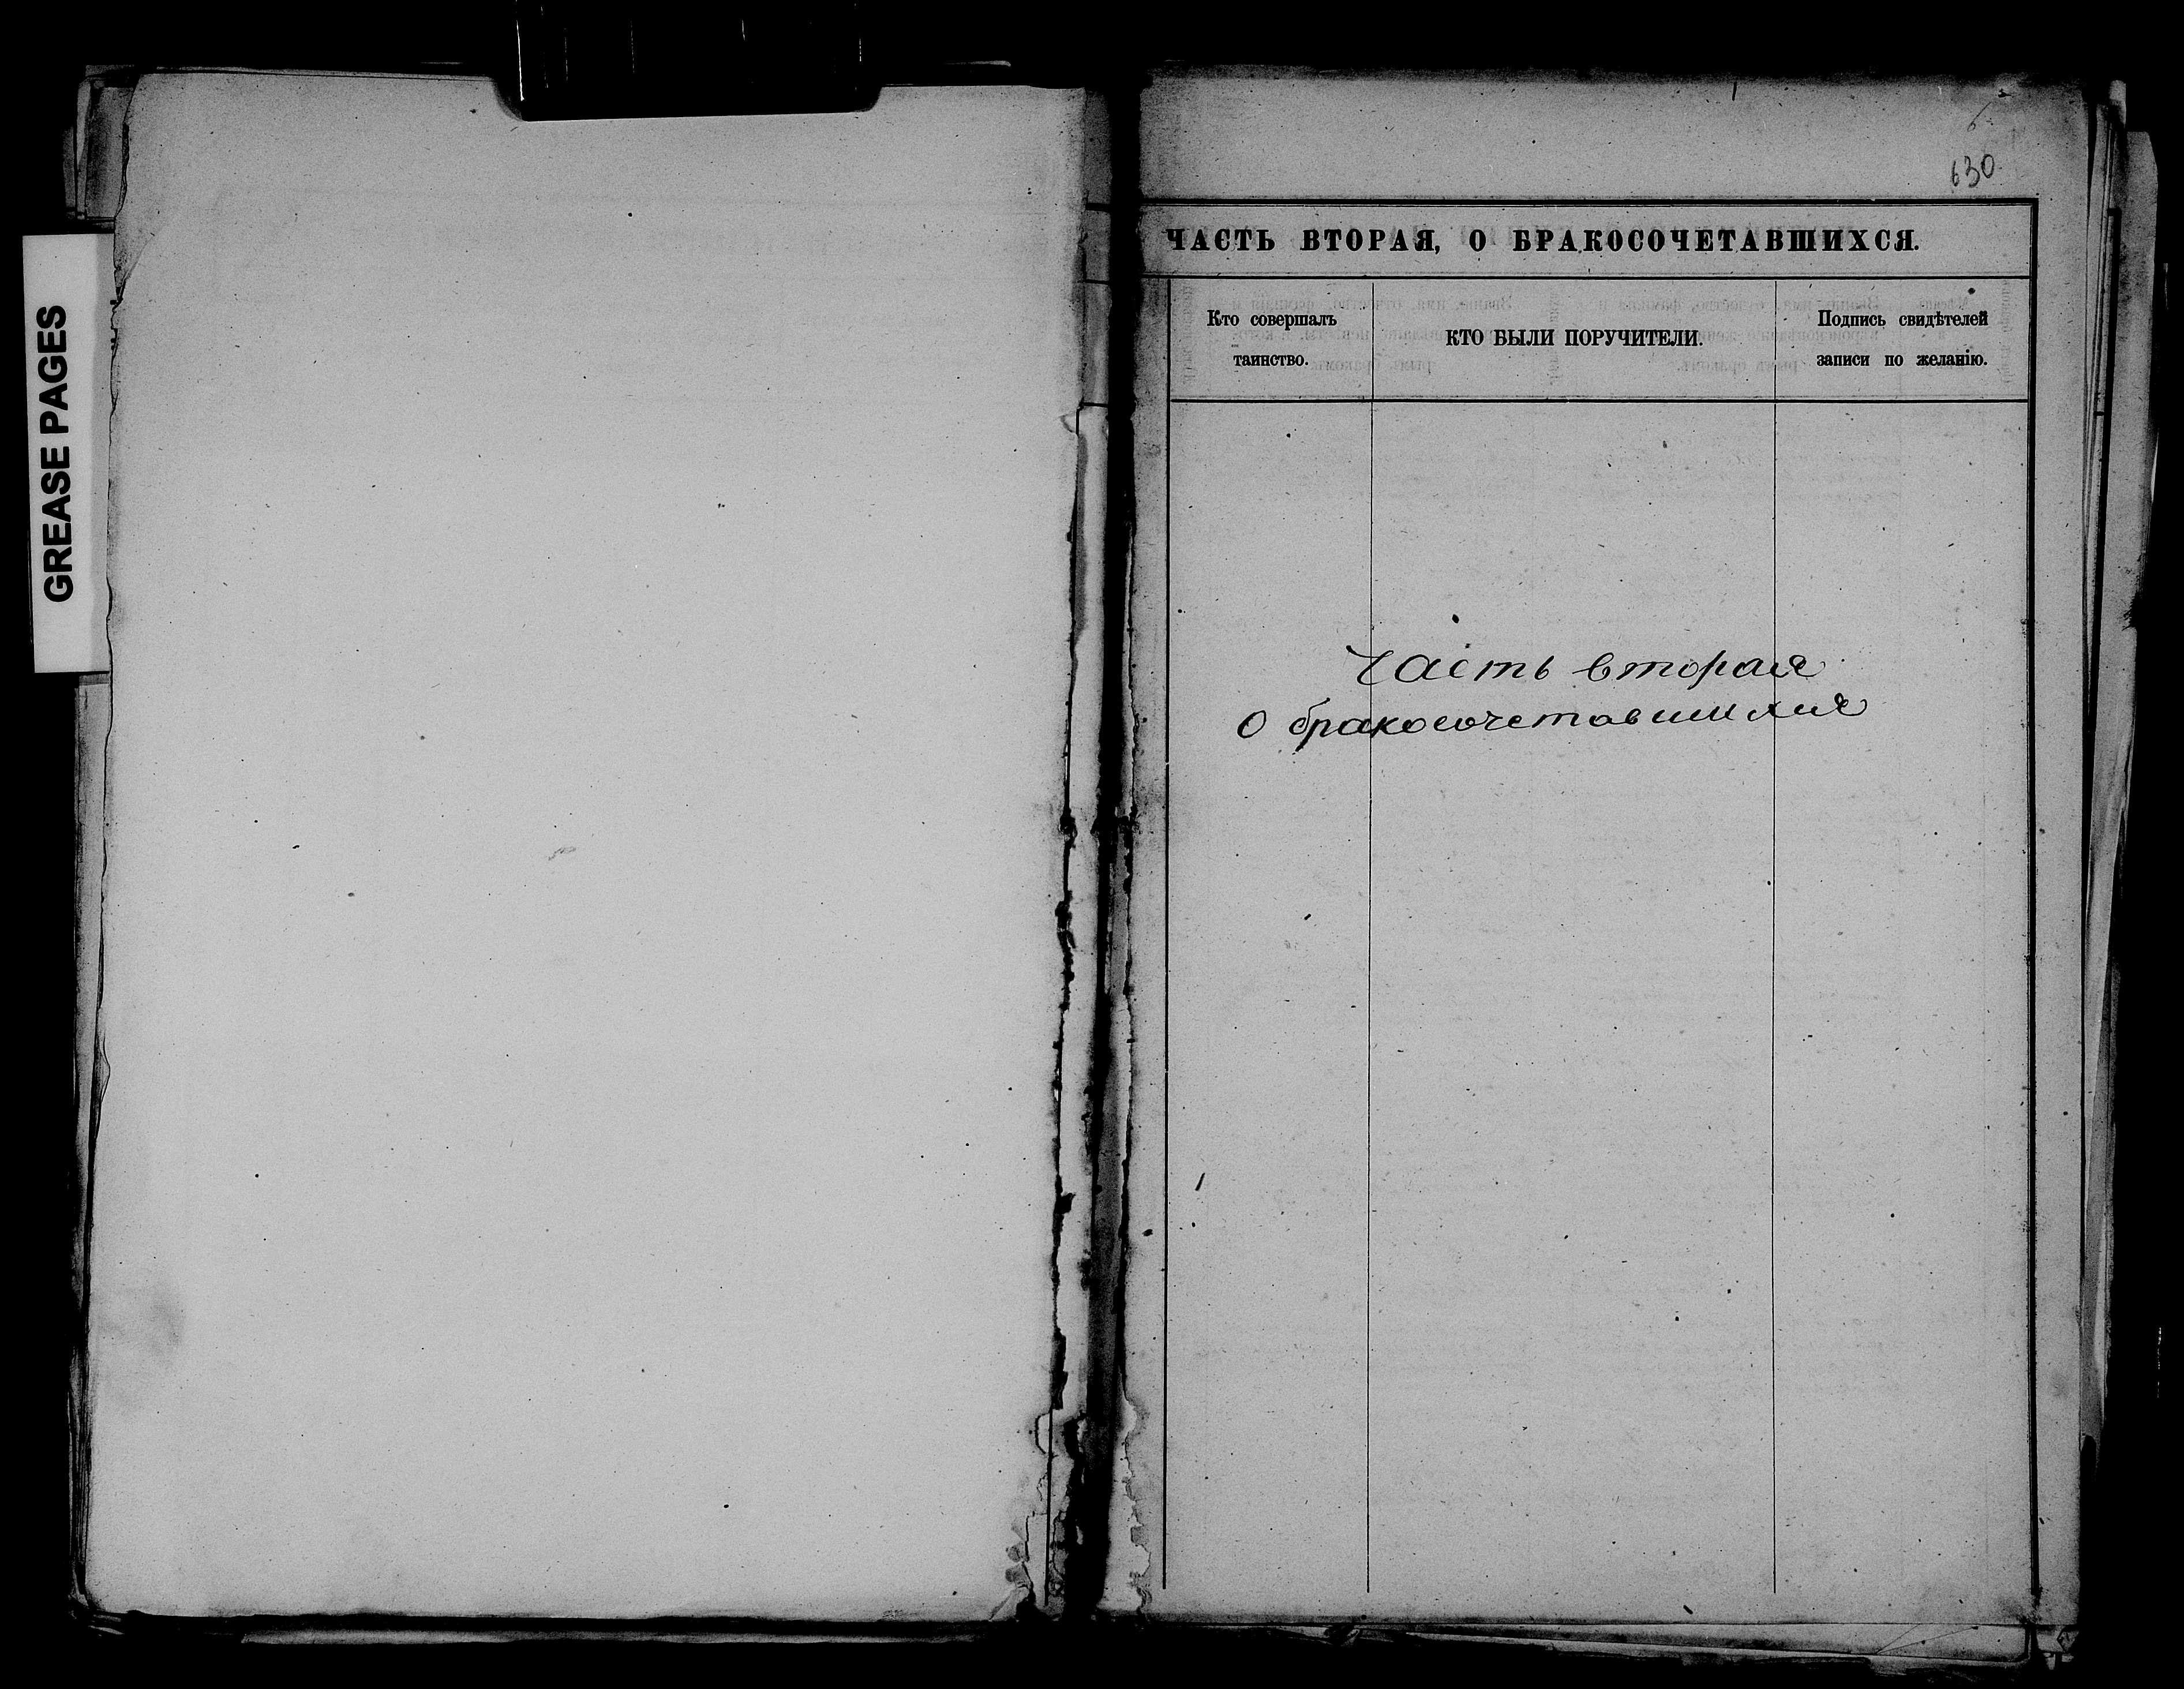 GREASE PAGES
6
630
ЧАСТЬ ВТОРАЯ, О БРАКОСОЧЕТАВШИХСЯ.
Кто совершалъ таинство.
КТО БЫЛИ ПОРУЧИТЕЛИ.
Подпись свидѣтелей записи по желанію.
Часть вторая
О бракосочетавшихся